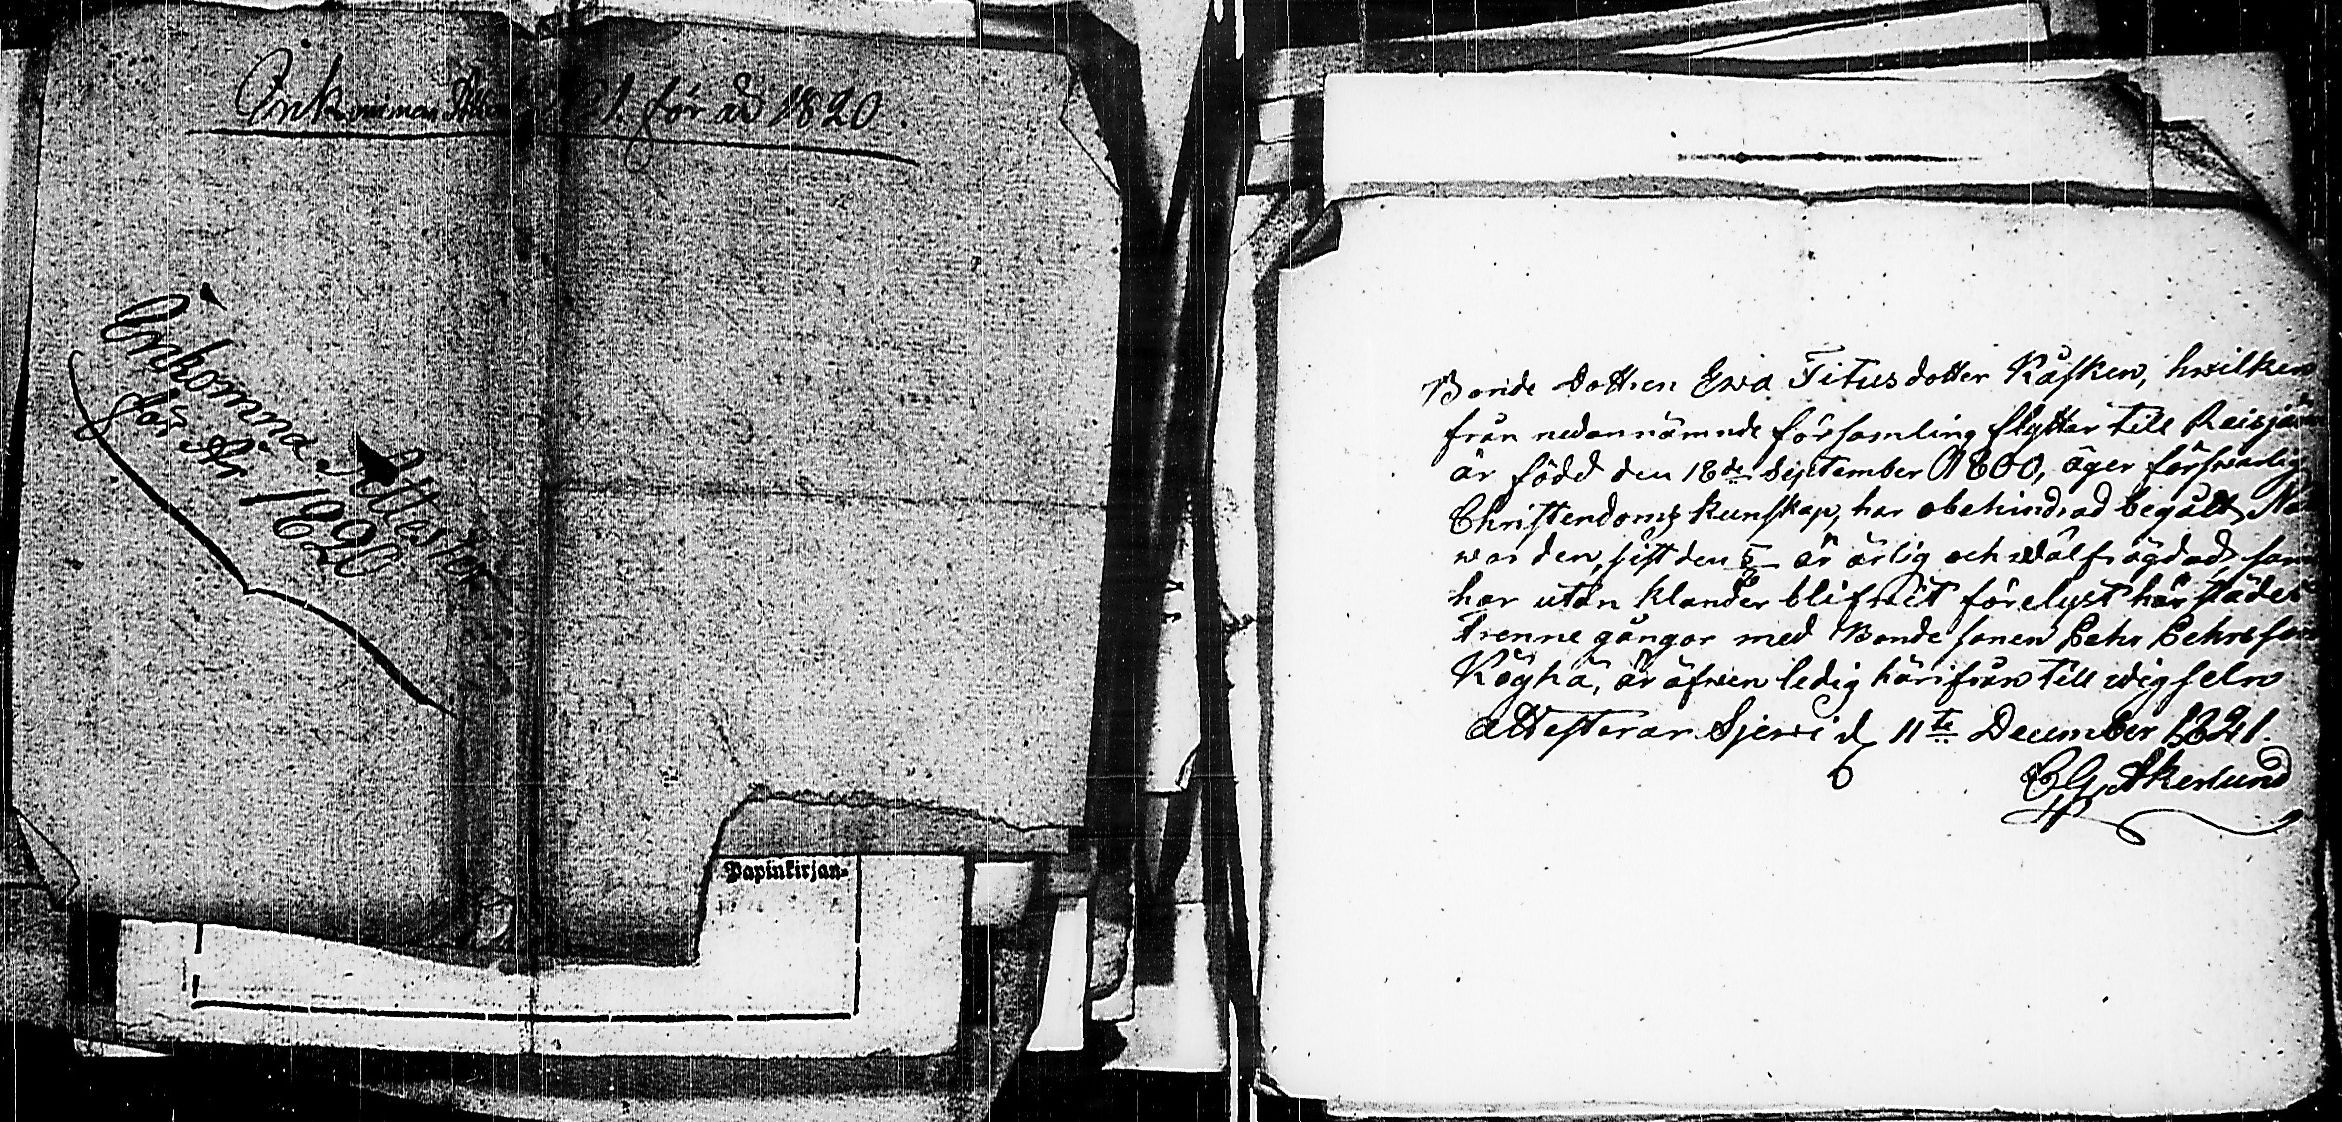 Inkomman Atte 1. för åd 1820.
Inkomna Attester
för År 1820
Papinkirjan=
Bonde dottren Ewa Titusdotter Kåsken, hwilken
från nedannämnde församling flyttar till Reisjär
är född den 18de September 1800, äger förswarlig
Christendoms kunskap, har obehindrad begått Nat
warden, sist den är ärlig och wälfrägdad sam
har utan klander blifwit förelyst härstädes
trenne gångor med Bonde sonen Pehr Pehrsson
Kögha, är äfwen ledig härifrån till wigseln
attesterar Sjewi d. 11te December 1821.
CG. Åkerlund